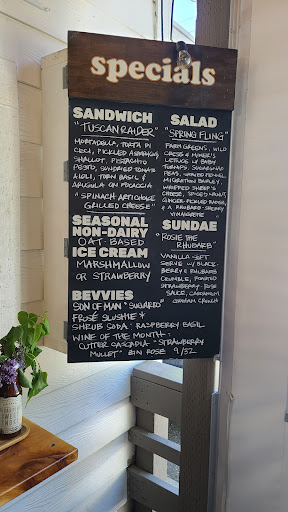 specials
SANDWICH
"TUSCAN RAIDER"
MORTADELLA, TORTA DI
CECI, PICKLED ASPARAGUS
SHALLOT, PISTACHIO
PESTO, SUNDRIED TOMATO
AIOLI, TORN BASIL &
ARUGULA ON FOCACCIA
"SPINACH ARTICHOKE
GRILLED CHEESE"
SEASONAL
NON-DAIRY
OAT-BASED
ICE CREAM
MARSHMALLOW
OR STRAWBERRY
BEVVIES
SON OF MAN "SUGARRO"
FROSÉ SLUSHIE &
SHRUB SODA: RASPBERRY BASIL
WINE OF THE MONTH:
CUTTER CASCADIA "STRAWBERRY
MULLET" ROSE 9/32
SALAD
"SPRING FLING"
FARM GREENS, WILD
CRESS & MINER'S
LETTUCE W/ BABY
TURNIPS, SUGARSNAP
PEAS,
MIGRATION BARLEY,
WHIPPED SHEEP'S
CHEESE, SPICED NUT,
GINGER-PICKLED RADISH,
& A RHUBARB-SHERRY
VINAIGRETTE
SUNDAE
"ROSIE THE
RHUBARB"
VANILLA SOFT
SERVE W/ BLACK-
BERRY & RHUBARB
CRUMBLE, ROASTED
STRAWBERRY-ROSE
SAUCE, CARDAMOM
GRAHAM CRUNCH